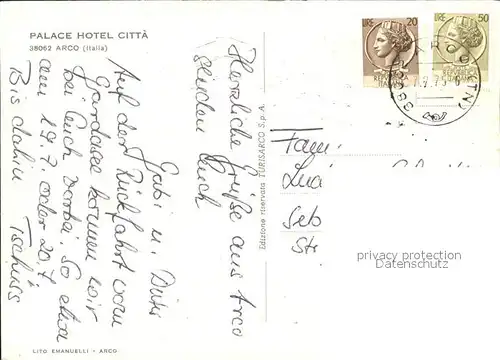 PALACE HOTEL CITTÀ
38062 ARCO (Italia)
Herzliche Grüße aus Arco
senden Euch
Gabi u. Dieter
Auf der Rückfahrt vom
Gardasee kommen wir
bei Euch vorbei. So etwa
am 19.7. oder 20.7.
Bis dahin Tschüss
LITO EMANUELLI - ARCO
Edizione riservata TURISARCO S.p.A.
LIRE 20
LIRE 50
38062
Fam
Seb
Str
privacy protection
Datenschutz